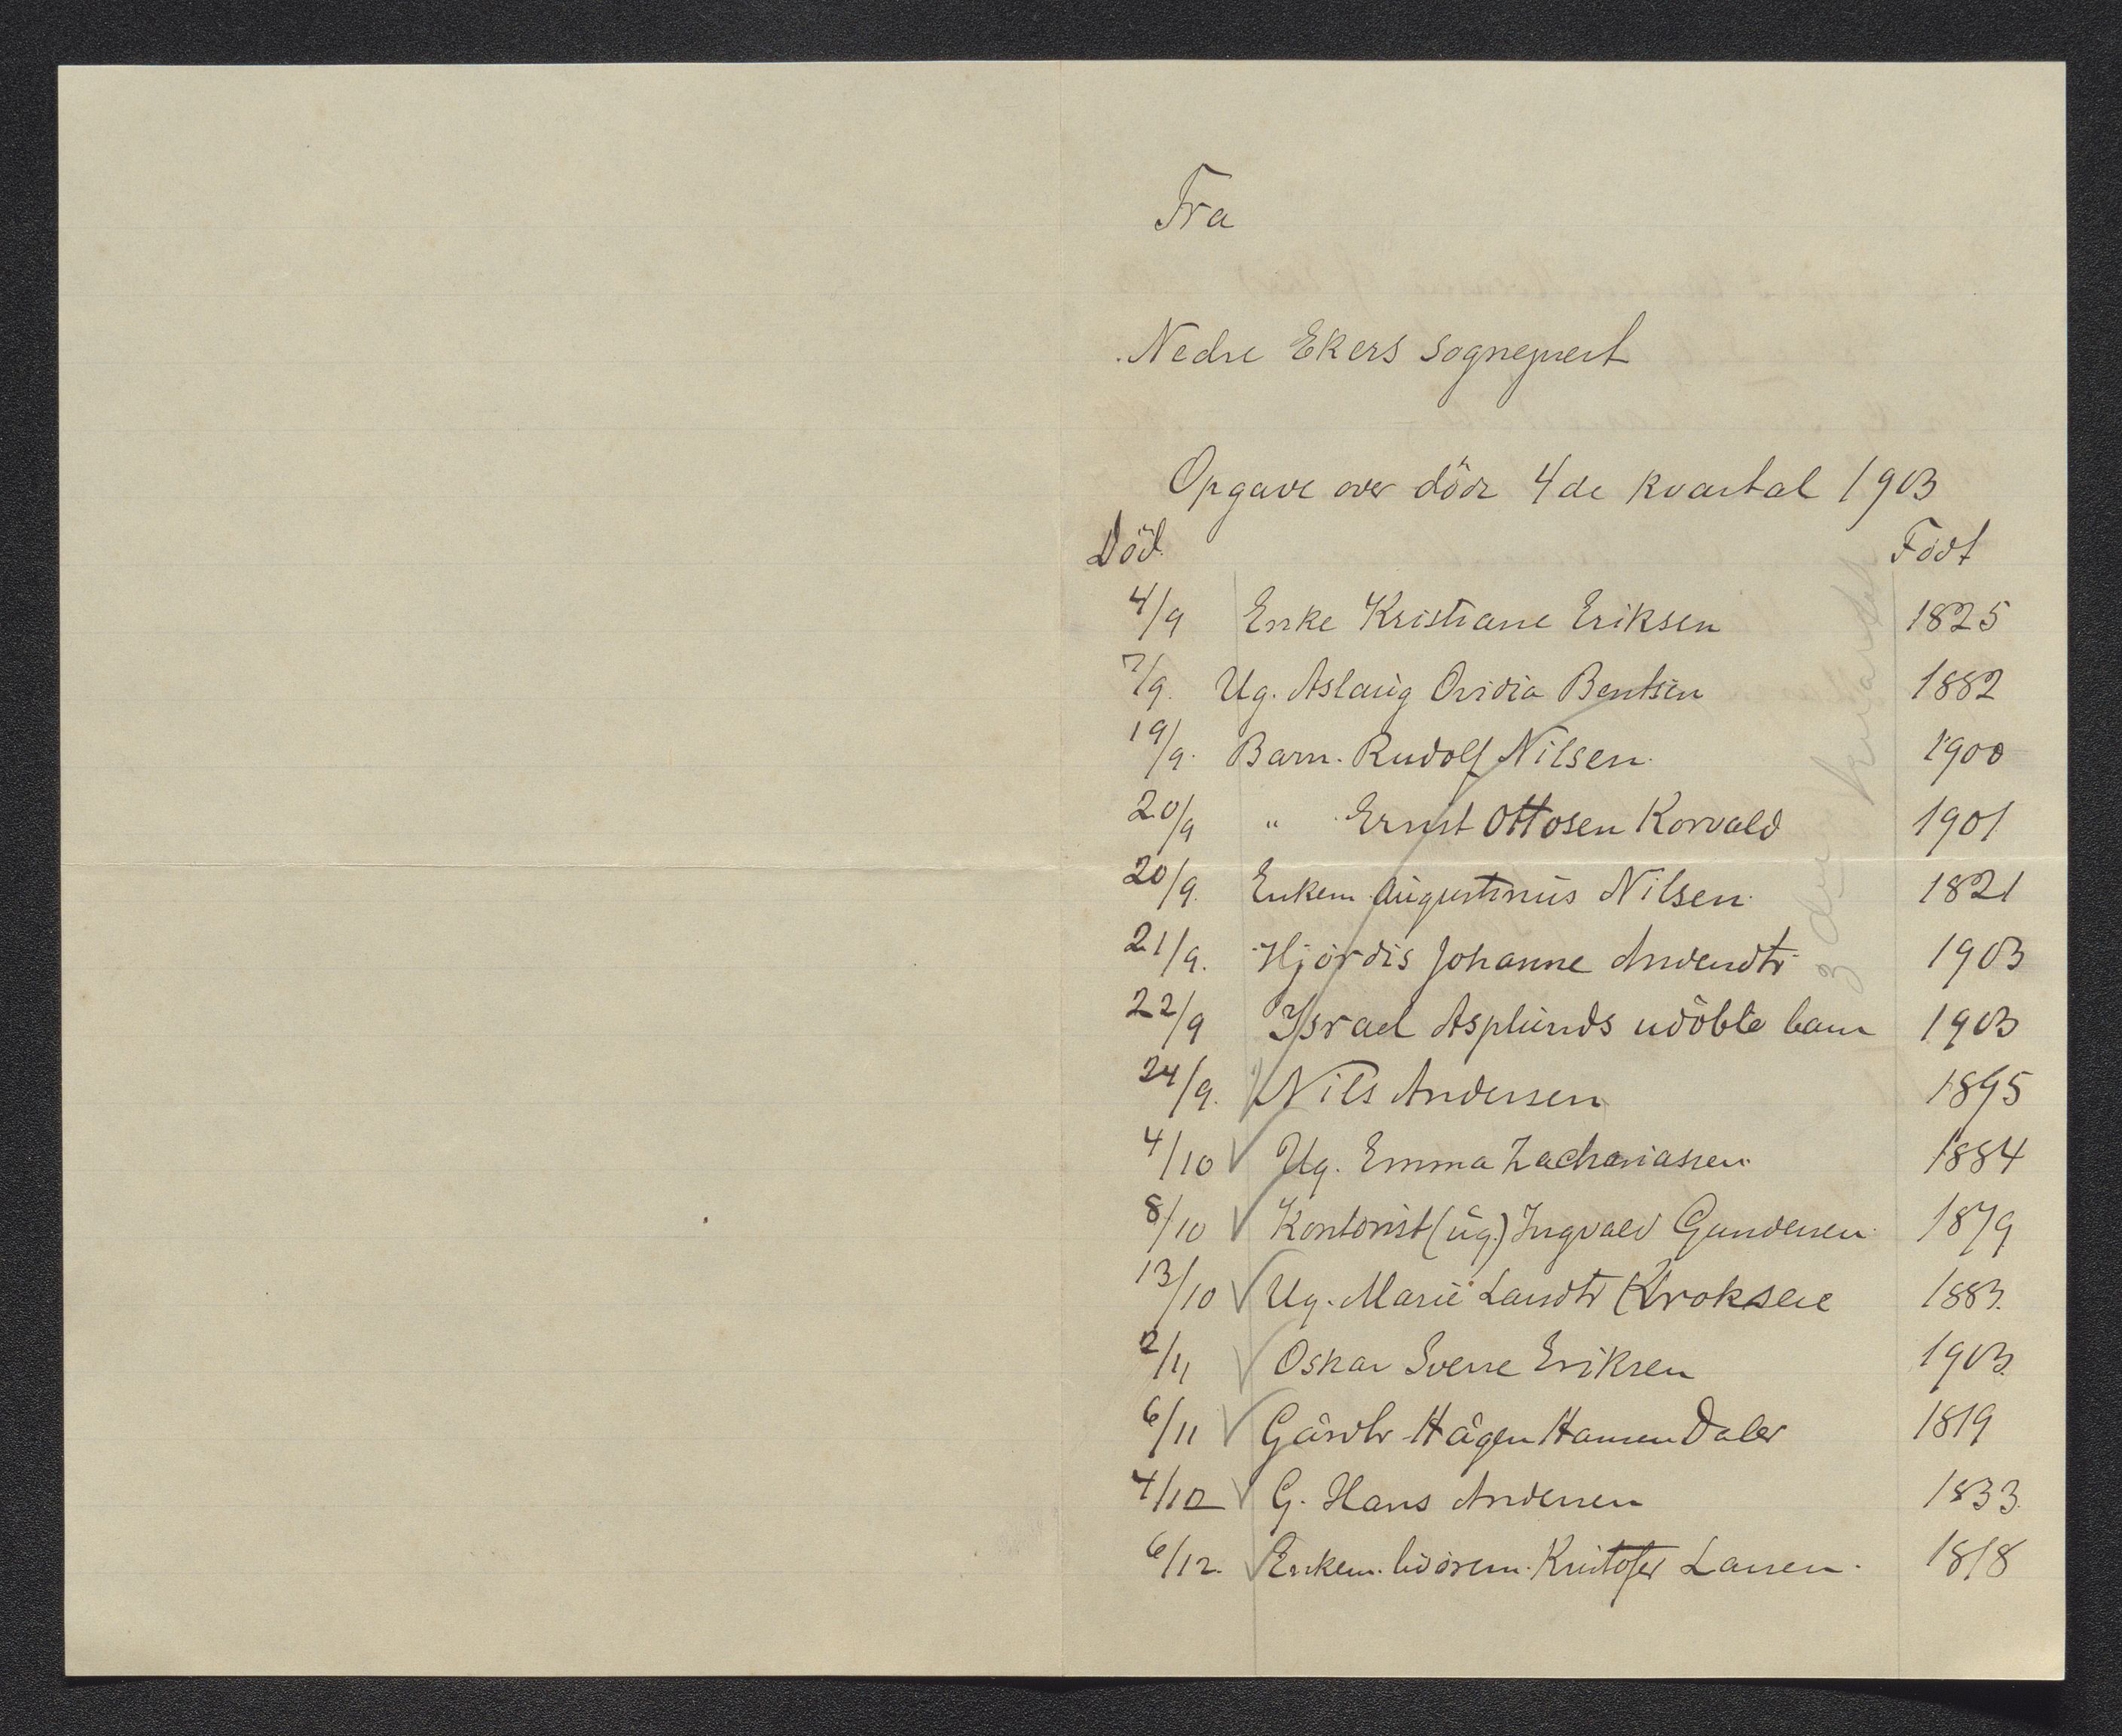 Fra
Nedre Ekers sogneprest
Opgave over döde 4de kvartal 1903
Död. Födt
4/9 Enke Kristiane Eriksen 1825
7/9. Ug. Aslaug Ovidia Bentsen 1882
19/9. Barn. Rudolf Nilsen. 1900
20/9 " Ernst Ottosen Korvald 1901
20/9. Enkem. Augustinus Nilsen. 1821
21/9. Hjördis Johanne Andersdtr 1903
22/9 Israel Asplunds udöbte barn 1903
24/9. Nils Andersen 1895
4/10 Ug. Emma Zachariassen 1884
8/10 Kontorist (ug.) Ingvald Gundersen 1879
13/10 Ug. Marie Larsdtr Krokseie 1883.
2/11 Oskar Sverre Eriksen 1903.
6/11 Gårdbr Hågen Hansen Daler 1819
4/12 G. Hans Andersen 1833.
6/12. Enkem. Kristofer Larsen. 1818
3die kvartal